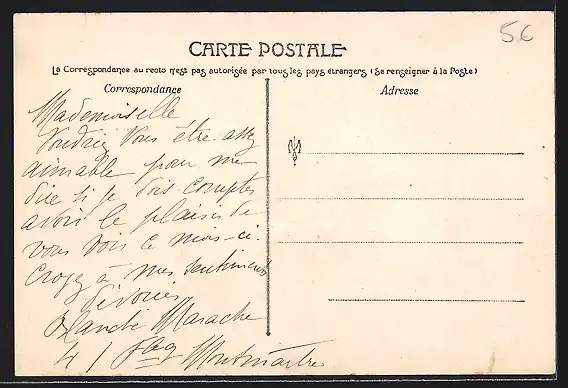 56
CARTE POSTALE
La Correspondance au recto n'est pas autorisée par tous les pays étrangers (Se renseigner à la Poste)
Correspondance
Adresse
Mademoiselle
Voudriez Vous être assez
aimable pour me
dire si je dois compter
avoir le plaisir de
vous voir ce mois-ci.
Croyez à mes sentiments
dévoués
Marache
41 Fbg Montmartre